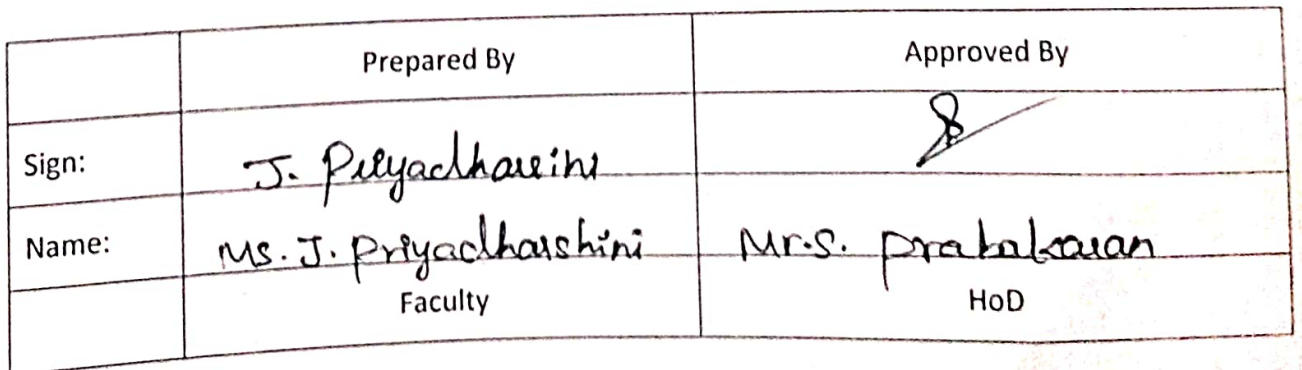 Prepared By Approved By
Sign: J. Priyadharsini
Name: Ms. J. Priyadharshini Mr.S. Prabakaran
Faculty HoD